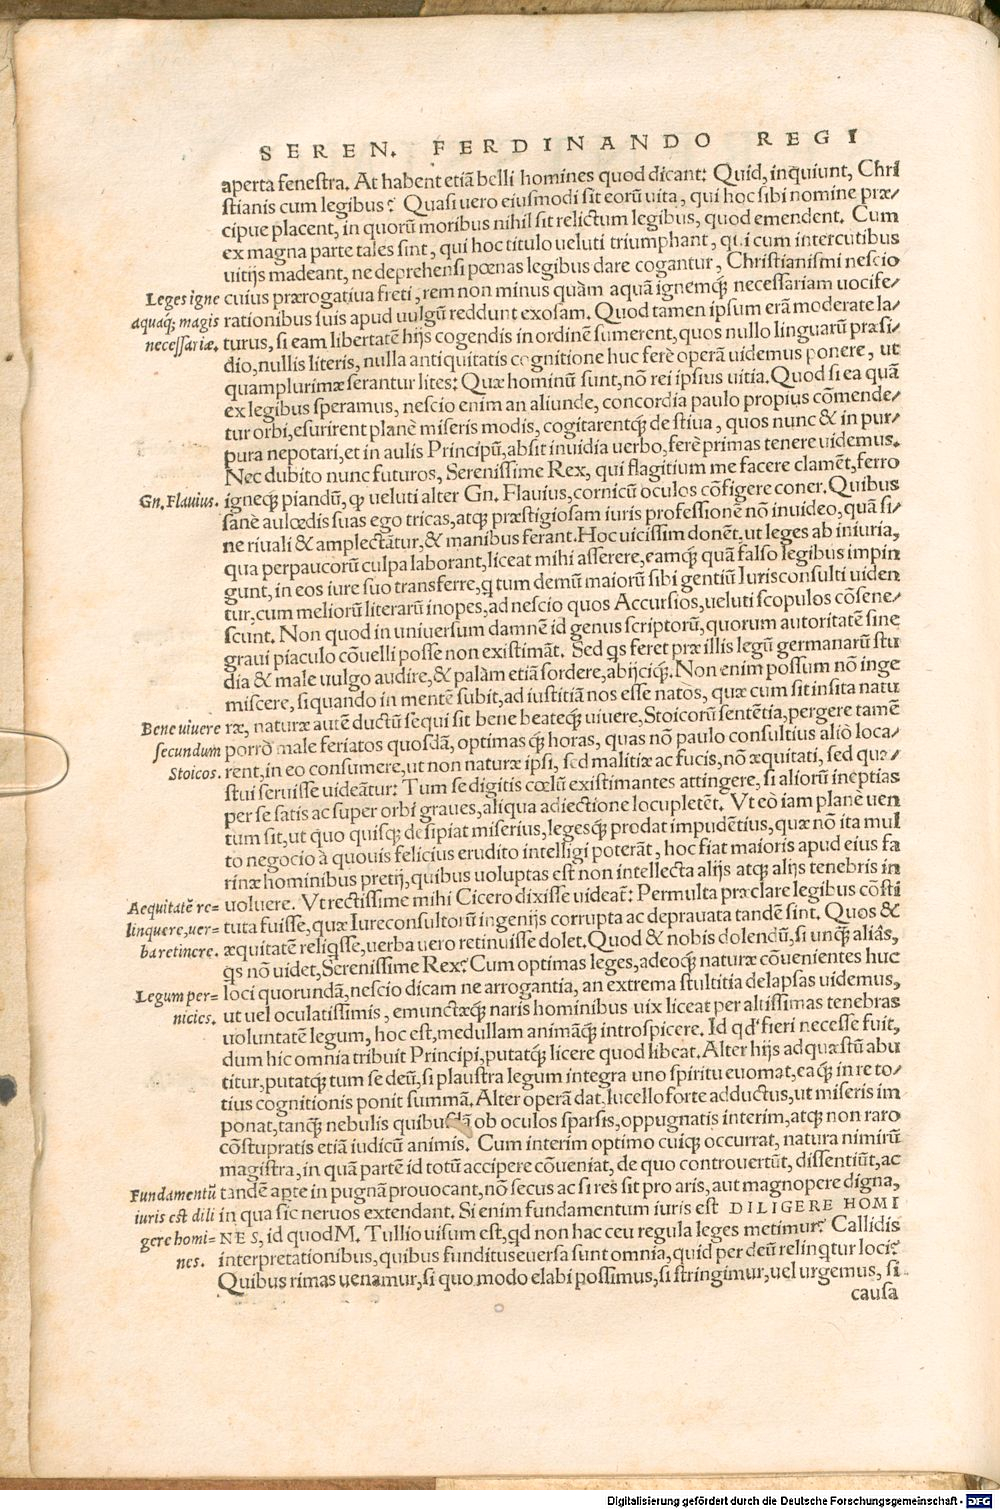 SEREN. FERDINANDO REGI
aperta fenestra. At habent etiã belli homines quod dicant: Quid, inquiunt, Chri
stianis cum legibus? Quasi uero eiusmodi sit eorũ uita, qui hoc sibi nomine præ/
cipue placent, in quorũ moribus nihil sit relictum legibus, quod emendent. Cum
ex magna parte tales sint, qui hoc titulo ueluti triumphant, qui cum intercutibus
uitijs madeant, ne deprehensi pœnas legibus dare cogantur, Christianismi nescio
Leges igne
cuius prærogatiua freti, rem non minus quàm aquã ignemq́; necessariam uocife/
aquaq́; magis
rationibus suis apud uulgũ reddunt exosam. Quod tamen ipsum erã moderate la/
necessariæ.
turus, si eam libertatẽ hijs cogendis in ordinẽ sumerent, quos nullo linguarũ præsi/
dio, nullis literis, nulla antiquitatis cognitione huc ferè operã uidemus ponere, ut
quamplurimæ serantur lites: Quæ hominũ sunt, nõ rei ipsius uitia. Quod si ea quã
ex legibus speramus, nescio enim an aliunde, concordia paulo propius cõmende/
tur orbi, esurirent planè miseris modis, cogitarentq́; de stiua, quos nunc & in pur/
pura nepotari, et in aulis Principũ, absit inuidia uerbo, ferè primas tenere uidemus.
Nec dubito nunc futuros, Serenissime Rex, qui flagitium me facere clamẽt, ferro
Gn. Flauius.
igneq́; piandũ, ꝙ ueluti alter Gn. Flauius, cornicũ oculos cõfigere coner. Quibus
sanè aulœdis suas ego tricas, atq; præstigiosam iuris professionẽ nõ inuideo, quã si/
ne riuali & amplectãtur, & manibus ferant. Hoc uicissim donẽt, ut leges ab iniuria,
qua perpaucorũ culpa laborant, liceat mihi asserere, eamq́; quã falso legibus impin
gunt, in eos iure suo transferre, q tum demũ maiorũ sibi gentiũ Iurisconsulti uiden
tur, cum meliorũ literarũ inopes, ad nescio quos Accursios, ueluti scopulos cõsene/
scunt. Non quod in uniuersum damnẽ id genus scriptorũ, quorum autoritatẽ sine
graui piaculo cõuelli posse non existimãt. Sed qs feret præ illis legũ germanarũ stu
dia & male uulgo audire, & palàm etiã sordere, abijciq́;. Non enim possum nõ inge
miscere, siquando in mentẽ subit, ad iustitiã nos esse natos, quæ cum sit insita natu
Bene uiuere
ræ, naturæ autẽ ductũ sequi sit bene beateq́; uiuere, Stoicorũ sentẽtia, pergere tamẽ
secundum
porrò male feriatos quosdã, optimasq́; horas, quas nõ paulo consultius aliò loca/
Stoicos.
rent, in eo consumere, ut non naturæ ipsi, sed malitiæ ac fucis, nõ æquitati, sed quæ/
stui seruisse uideãtur: Tum se digitis cœlũ existimantes attingere, si aliorũ ineptias
per se satis ac super orbi graues, aliqua adiectione locupletẽt. Vt eò iam planè uen
tum sit, ut quo quisq; desipiat miserius, legesq́; prodat impudẽtius, quæ nõ ita mul
to negocio à quouis felicius erudito intelligi poterãt, hoc fiat maioris apud eius fa
rinæ hominibus pretij, quibus uoluptas est non intellecta alijs atq; alijs tenebris in
Aequitatẽ re=
uoluere. Vt rectissime mihi Cicero dixisse uideat̃: Permulta præclare legibus cõsti
linquere, uer=
tuta fuisse, quæ Iureconsultorũ ingenijs corrupta ac deprauata tandẽ sint. Quos &
ba retinere.
æquitatẽ reliqsse, uerba uero retinuisse dolet. Quod & nobis dolendũ, si unq́; aliâs,
qs nõ uidet, Serenissime Rex? Cum optimas leges, adeoq́; naturæ cõuenientes huc
Legum per=
loci quorundã, nescio dicam ne arrogantia, an extrema stultitia delapsas uidemus,
nicies.
ut uel oculatissimis, emunctæq́; naris hominibus uix liceat per altissimas tenebras
uoluntatẽ legum, hoc est, medullam animãq́; introspicere. Id qd' fieri necesse fuit,
dum hic omnia tribuit Principi, putatq́; licere quod libeat. Alter hijs ad quæstũ abu
titur, putatq́; tum se deũ, si plaustra legum integra uno spiritu euomat, eaq́; in re to/
tius cognitionis ponit summã. Alter operã dat, lucello forte adductus, ut miseris im
ponat, tanq́; nebulis quibusdã ob oculos sparsis, oppugnatis interim, atq; non raro
cõstupratis etiã iudicũ animis. Cum interim optimo cuiq; occurrat, natura nimirũ
magistra, in quã partẽ id totũ accipere cõueniat, de quo controuertũt, dissentiũt, ac
Fundamentũ
tandẽ apte in pugnã prouocant, nõ secus ac si res sit pro aris, aut magnopere digna,
iuris est dili
in qua sic neruos extendant. Si enim fundamentum iuris est DILIGERE HOMI
gere homi=
NES, id quod M. Tullio uisum est, qd non hac ceu regula leges metimur? Callidis
nes.
interpretationibus, quibus funditus euersa sunt omnia, quid per deũ relinqtur loci?
Quibus rimas uenamur, si quo modo elabi possimus, si stringimur, uel urgemus, si
causa
Digitalisierung gefördert durch die Deutsche Forschungsgemeinschaft - DFG